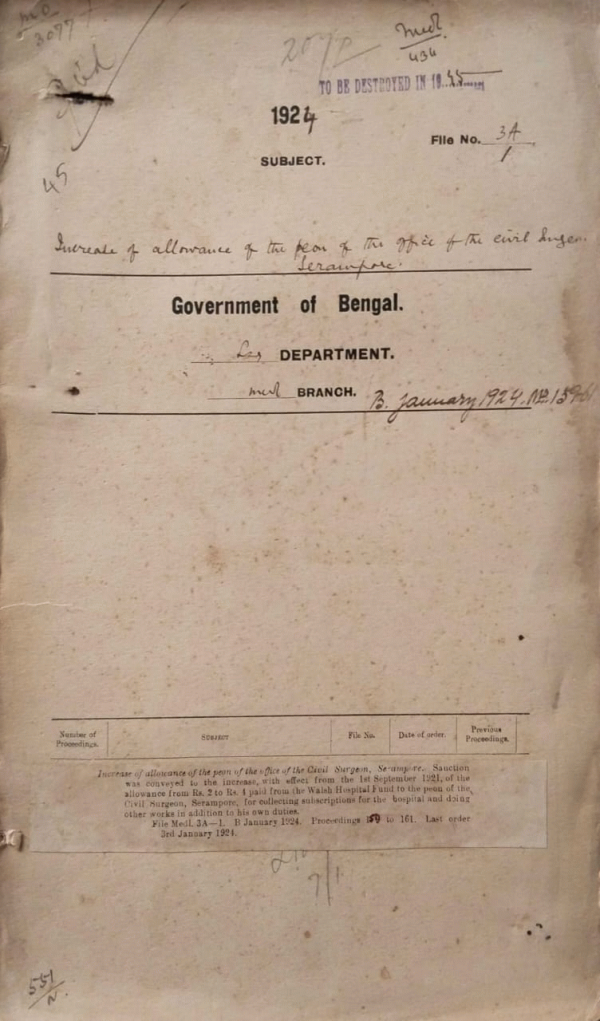 3077
Medl.
434
TO BE DESTROYED IN 19 45
1924
File No. 3A/1
SUBJECT.
45
Increase of allowance of the peon of the office of the civil Surgeon
Serampore.
Government of Bengal.
DEPARTMENT.
Medl BRANCH.
B. January 1924. No. 159-61
Number of Proceedings. SUBJECT File No. Date of order. Previous Proceedings.
Increase of allowance of the peon of the office of the Civil Surgeon, Serampore. Sanction
was conveyed to the increase, with effect from the 1st September 1921, of the
allowance from Rs. 2 to Rs. 4 paid from the Walsh Hospital Fund to the peon of the
Civil Surgeon, Serampore, for collecting subscriptions for the hospital and doing
other works in addition to his own duties.
File Medl. 3A—1. B January 1924. Proceedings 159 to 161. Last order
3rd January 1924.
7/1
551/N.